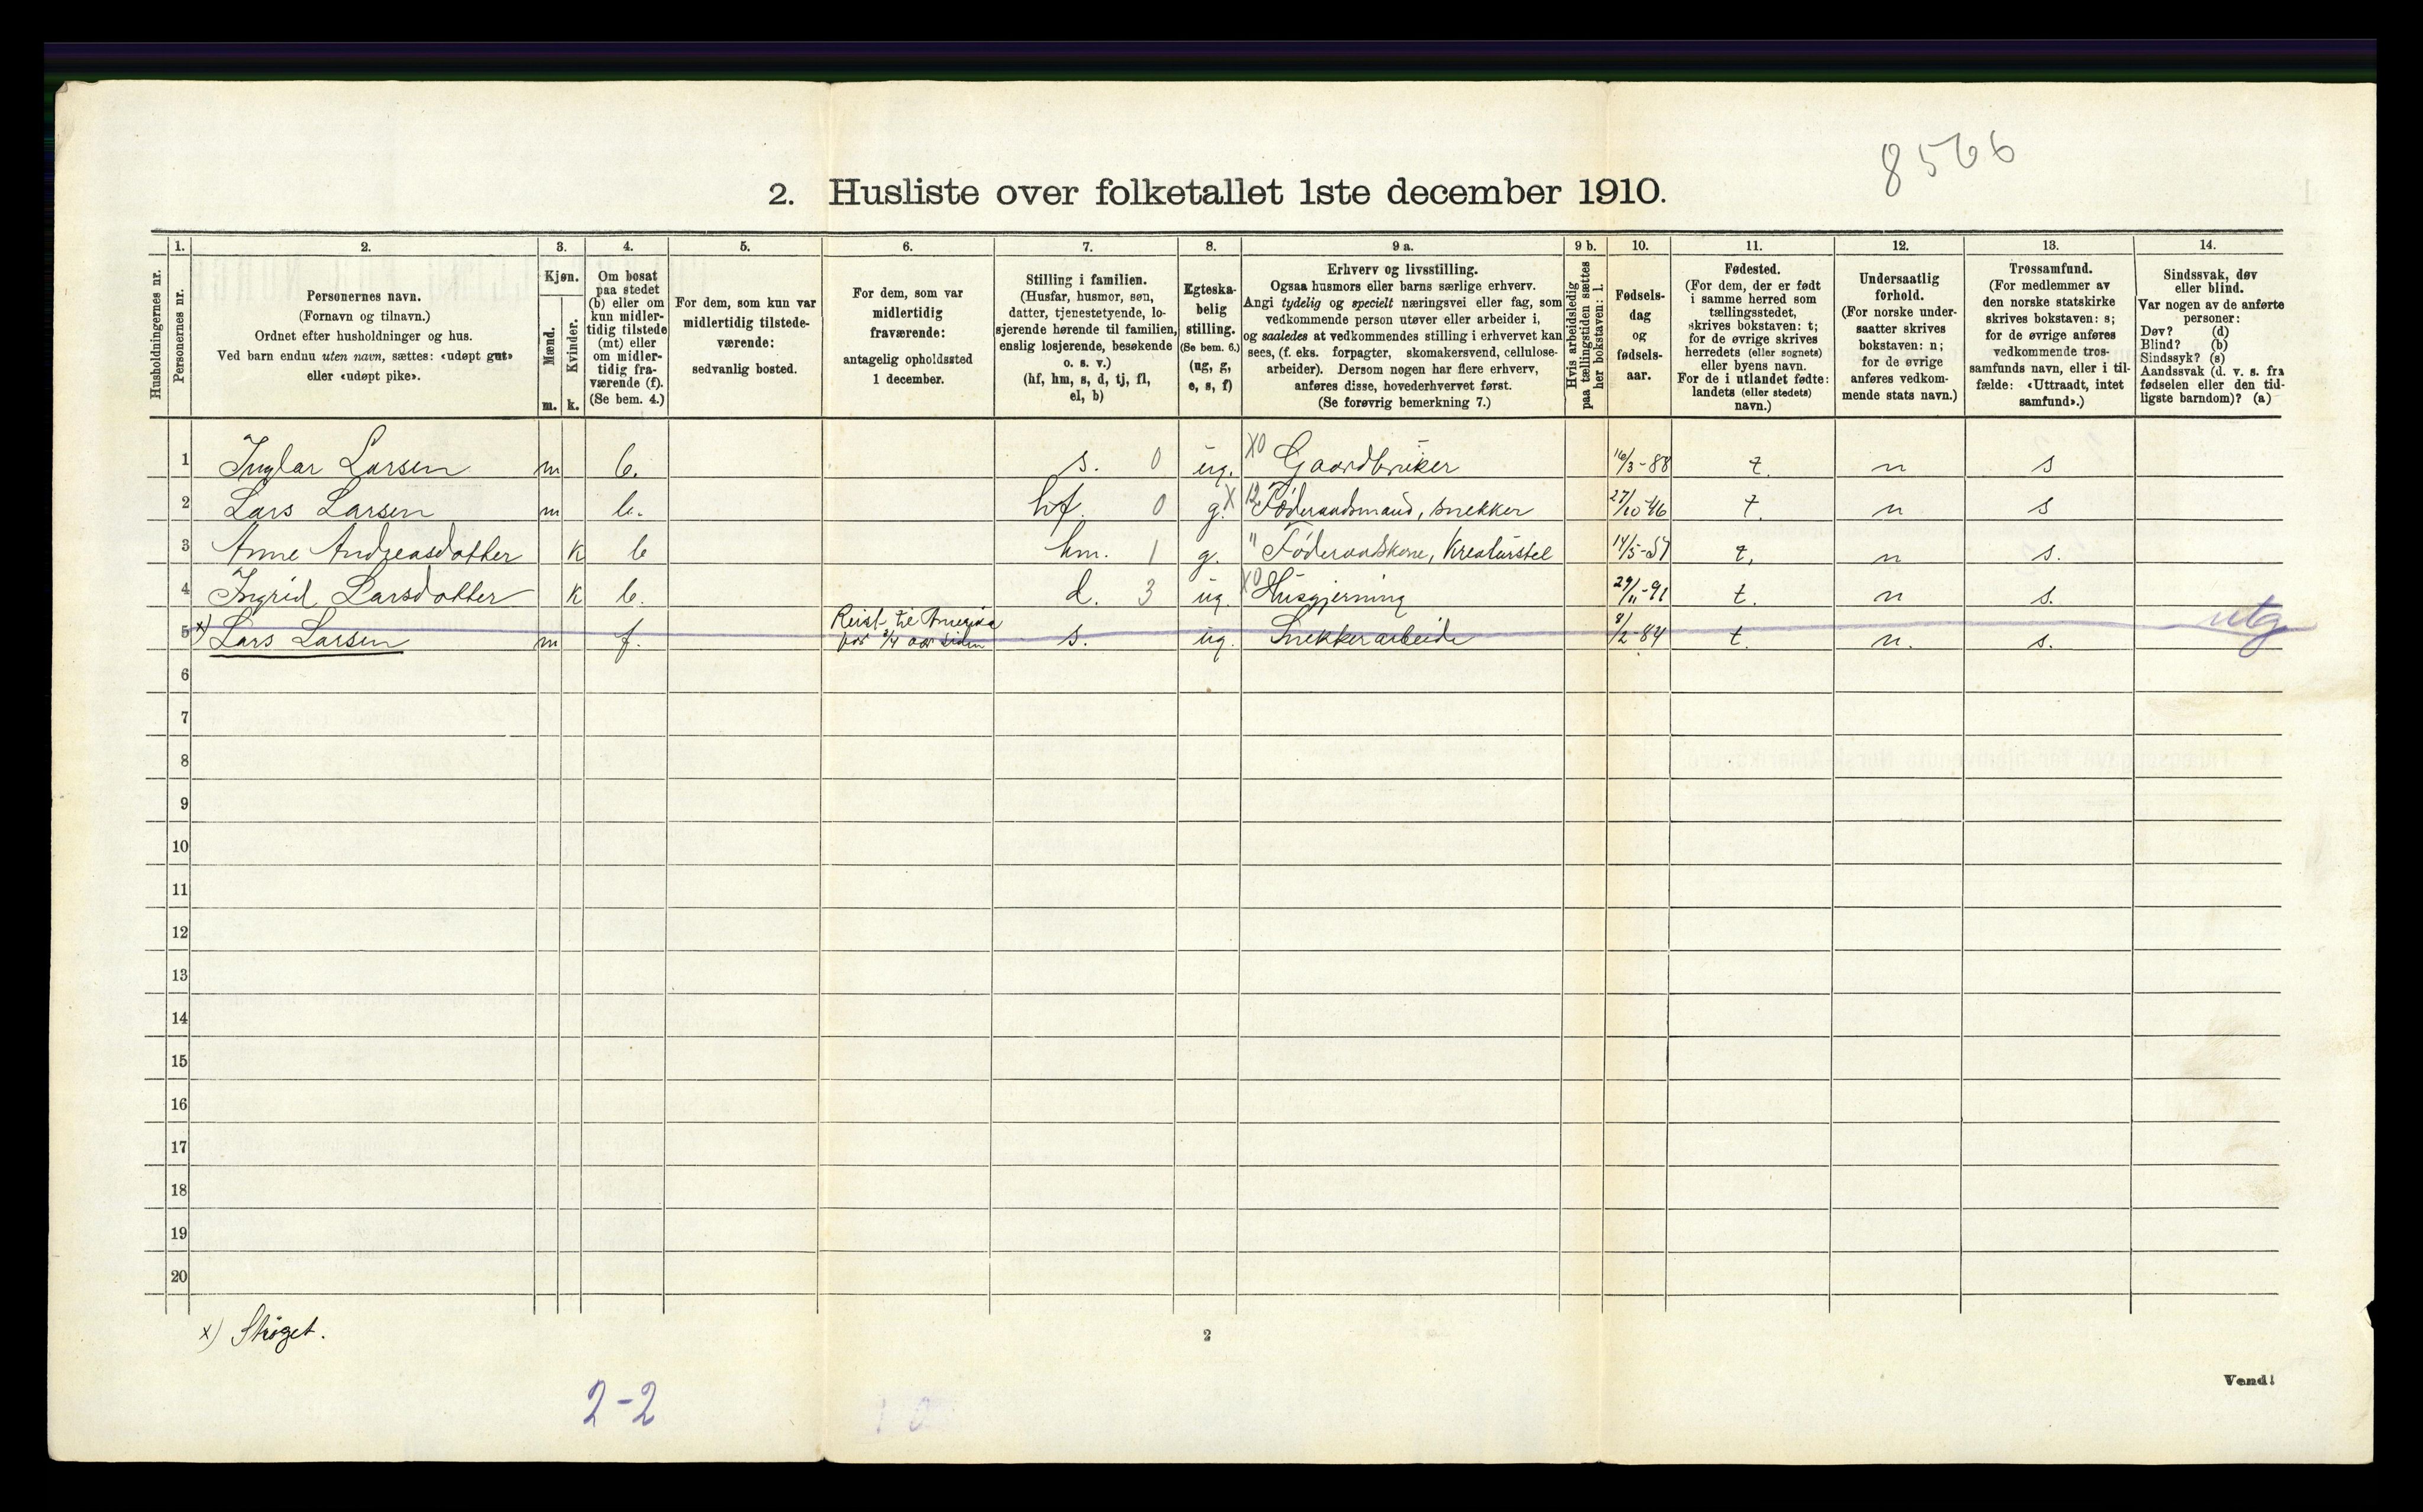 8566
2. Husliste over folketallet 1ste december 1910.
1. 2. 3. 4. 5. 6. 7. 8. 9 a. 9 b. 10. 11. 12. 13. 14.
Husholdningernes nr.
Personernes nr.
Personernes navn.
(Fornavn og tilnavn.)
Ordnet efter husholdninger og hus.
Ved barn endnu uten navn, sættes: «udøpt gut»
eller «udøpt pike».
Kjøn.
Mænd.
Kvinder.
m. k.
Om bosat
paa stedet
(b) eller om
kun midler-
tidig tilstede
(mt) eller
om midler-
tidig fra-
værende (f).
(Se bem. 4.)
For dem, som kun var
midlertidig tilstede-
værende:
sedvanlig bosted.
For dem, som var
midlertidig
fraværende:
antagelig opholdssted
1 december.
Stilling i familien.
(Husfar, husmor, søn,
datter, tjenestetyende, lo-
sjerende hørende til familien,
enslig losjerende, besøkende
o. s. v.)
(hf, hm, s, d, tj, fl,
el, b)
Egteska-
belig
stilling.
(Se bem. 6.)
(ug, g,
e, s, f)
Erhverv og livsstilling.
Ogsaa husmors eller barns særlige erhverv.
Angi tydelig og specielt næringsvei eller fag, som
vedkommende person utøver eller arbeider i,
og saaledes at vedkommendes stilling i erhvervet kan
sees, (f. eks. forpagter, skomakersvend, cellulose-
arbeider). Dersom nogen har flere erhverv,
anføres disse, hovederhvervet først.
(Se forøvrig bemerkning 7.)
Hvis arbeidsledig
paa tællingstiden sættes
her bokstaven: l.
Fødsels-
dag
og
fødsels-
aar.
Fødested.
(For dem, der er født
i samme herred som
tællingsstedet,
skrives bokstaven: t;
for de øvrige skrives
herredets (eller sognets)
eller byens navn.
For de i utlandet fødte:
landets (eller stedets)
navn.)
Undersaatlig
forhold.
(For norske under-
saatter skrives
bokstaven: n;
for de øvrige
anføres vedkom-
mende stats navn.)
Trossamfund.
(For medlemmer av
den norske statskirke
skrives bokstaven: s;
for de øvrige anføres
vedkommende tros-
samfunds navn, eller i til-
fælde: «Uttraadt, intet
samfund».)
Sindssvak, døv
eller blind.
Var nogen av de anførte
personer:
Døv? (d)
Blind? (b)
Sindssyk? (s)
Aandssvak (d. v. s. fra
fødselen eller den tid-
ligste barndom)? (a)
1 Inglar Larsen m b. s. 0 ug. X0 Gaardbruker 16/3-88 t. n s
2 Lars Larsen m b. hf. 0 g. X 12 Føderaadsmand, snekker 27/10-46 t. n s
3 Anne Andreasdotter k b hm. 1 g. " Føderaadskone, Kreaturstel 14/5-57 t. n s.
4 Ingrid Larsdotter k b. d. 3 ug. X0 Husgjerning 29/11-91 t. n s.
5 x) Lars Larsen m f. Reist til Amerika for 3/4 aar siden s. ug. Snekkerarbeide 8/2-84 t. n. s. utg
6
7
8
9
10
11
12
13
14
15
16
17
18
19
20
x) Strøget.
2
Vend!
2-2